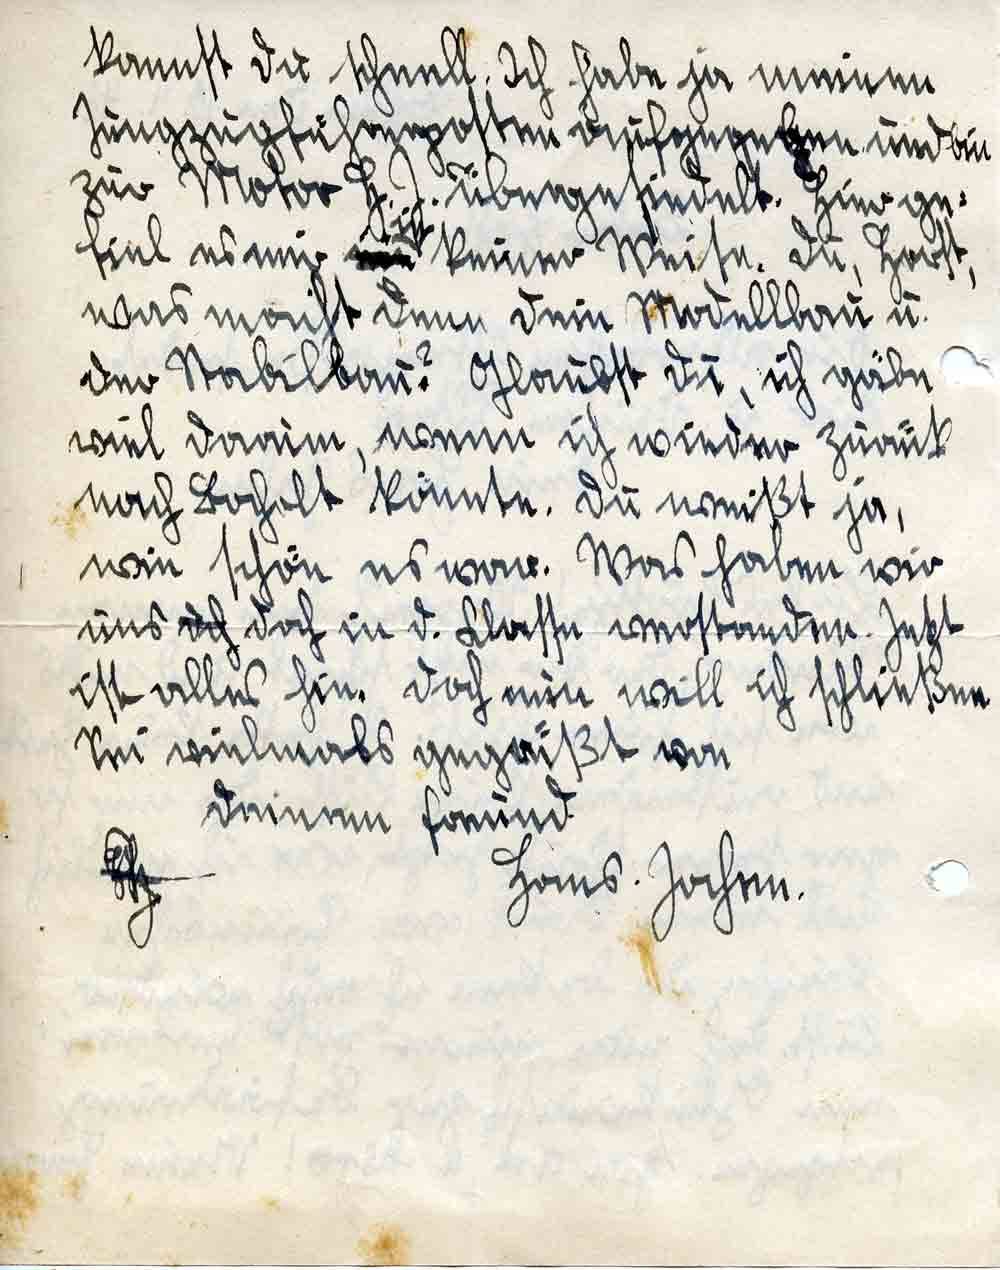 kannst Du schnell. Ich habe ja meinen
Jungzugführerposten aufgegeben und bin
zur Motor H.J. übergesiedelt. Hier ge=
fiel es mir in keiner Weise. Du, Horst,
was macht denn dein Modellbau u.
der Stabilbau? Glaubst Du, ich gäbe
viel darum, wenn ich wieder zurück
nach Bocholt könnte. Du weißt ja,
wie schön es war. Was haben wir
uns doch in d. Klasse verstanden. Jetzt
ist alles hin. Doch nun will ich schließen
Sei vielmals gegrüßt von
deinem Freund
Hans-Jochen.